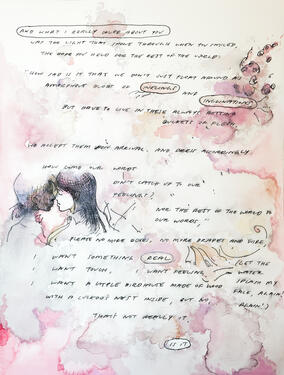 AND WHAT I REALLY LOVED ABOUT YOU
WAS THE LIGHT THAT SHONE THROUGH WHEN YOU SMILED,
THE HOPE YOU HELD FOR THE REST OF THE WORLD.
"HOW SAD IS IT THAT WE DON'T JUST FLOAT AROUND AS
AMORPHOUS BLOBS OF FEELINGS AND
INCLINATIONS
BUT HAVE TO LIVE IN THESE ALWAYS ROTTING
BUCKETS OF FLESH.
WE ACCEPT THEM UPON ARRIVAL, AND DRESS ACCORDINGLY.
HOW COME OUR WORDS
DON'T CATCH UP TO OUR
FEELINGS?"
NOR THE REST OF THE WORLD TO
OUR WORDS,"
PLEASE NO MORE BOXES, NO MORE DRAPES AND
I WANT SOMETHING REAL (LET THE
I WANT TOUCH, I WANT FEELING WATER
I WANT A LITTLE BIRDHOUSE MADE OF WOOD SPLASH MY
WITH A CUCKOO'S NEST INSIDE, BUT NO FACE AGAIN!
AGAIN!)
THAT'S NOT REALLY IT
IS IT